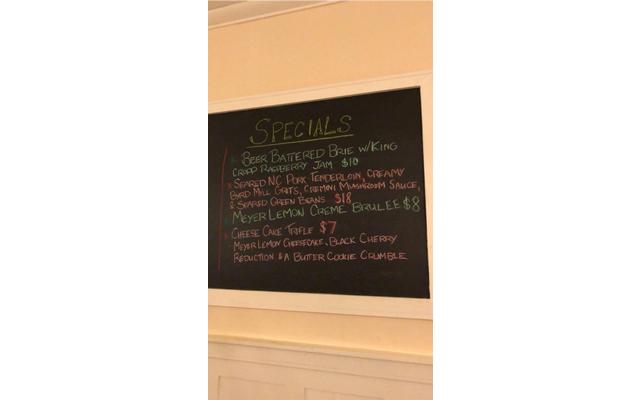 SPECIALS
BEER BATTERED BRIE W/KING
CROPP RASPBERRY JAM $10
SEARED NC PORK TENDERLOIN, CREAMY
BYRD MILL GRITS, CREMINI MUSHROOM SAUCE,
& SEARED GREEN BEANS $18
MEYER LEMON CREME BRULEE $8
CHEESE CAKE TRIFLE $7
MEYER LEMON CHEESECAKE, BLACK CHERRY
REDUCTION & A BUTTER COOKIE CRUMBLE